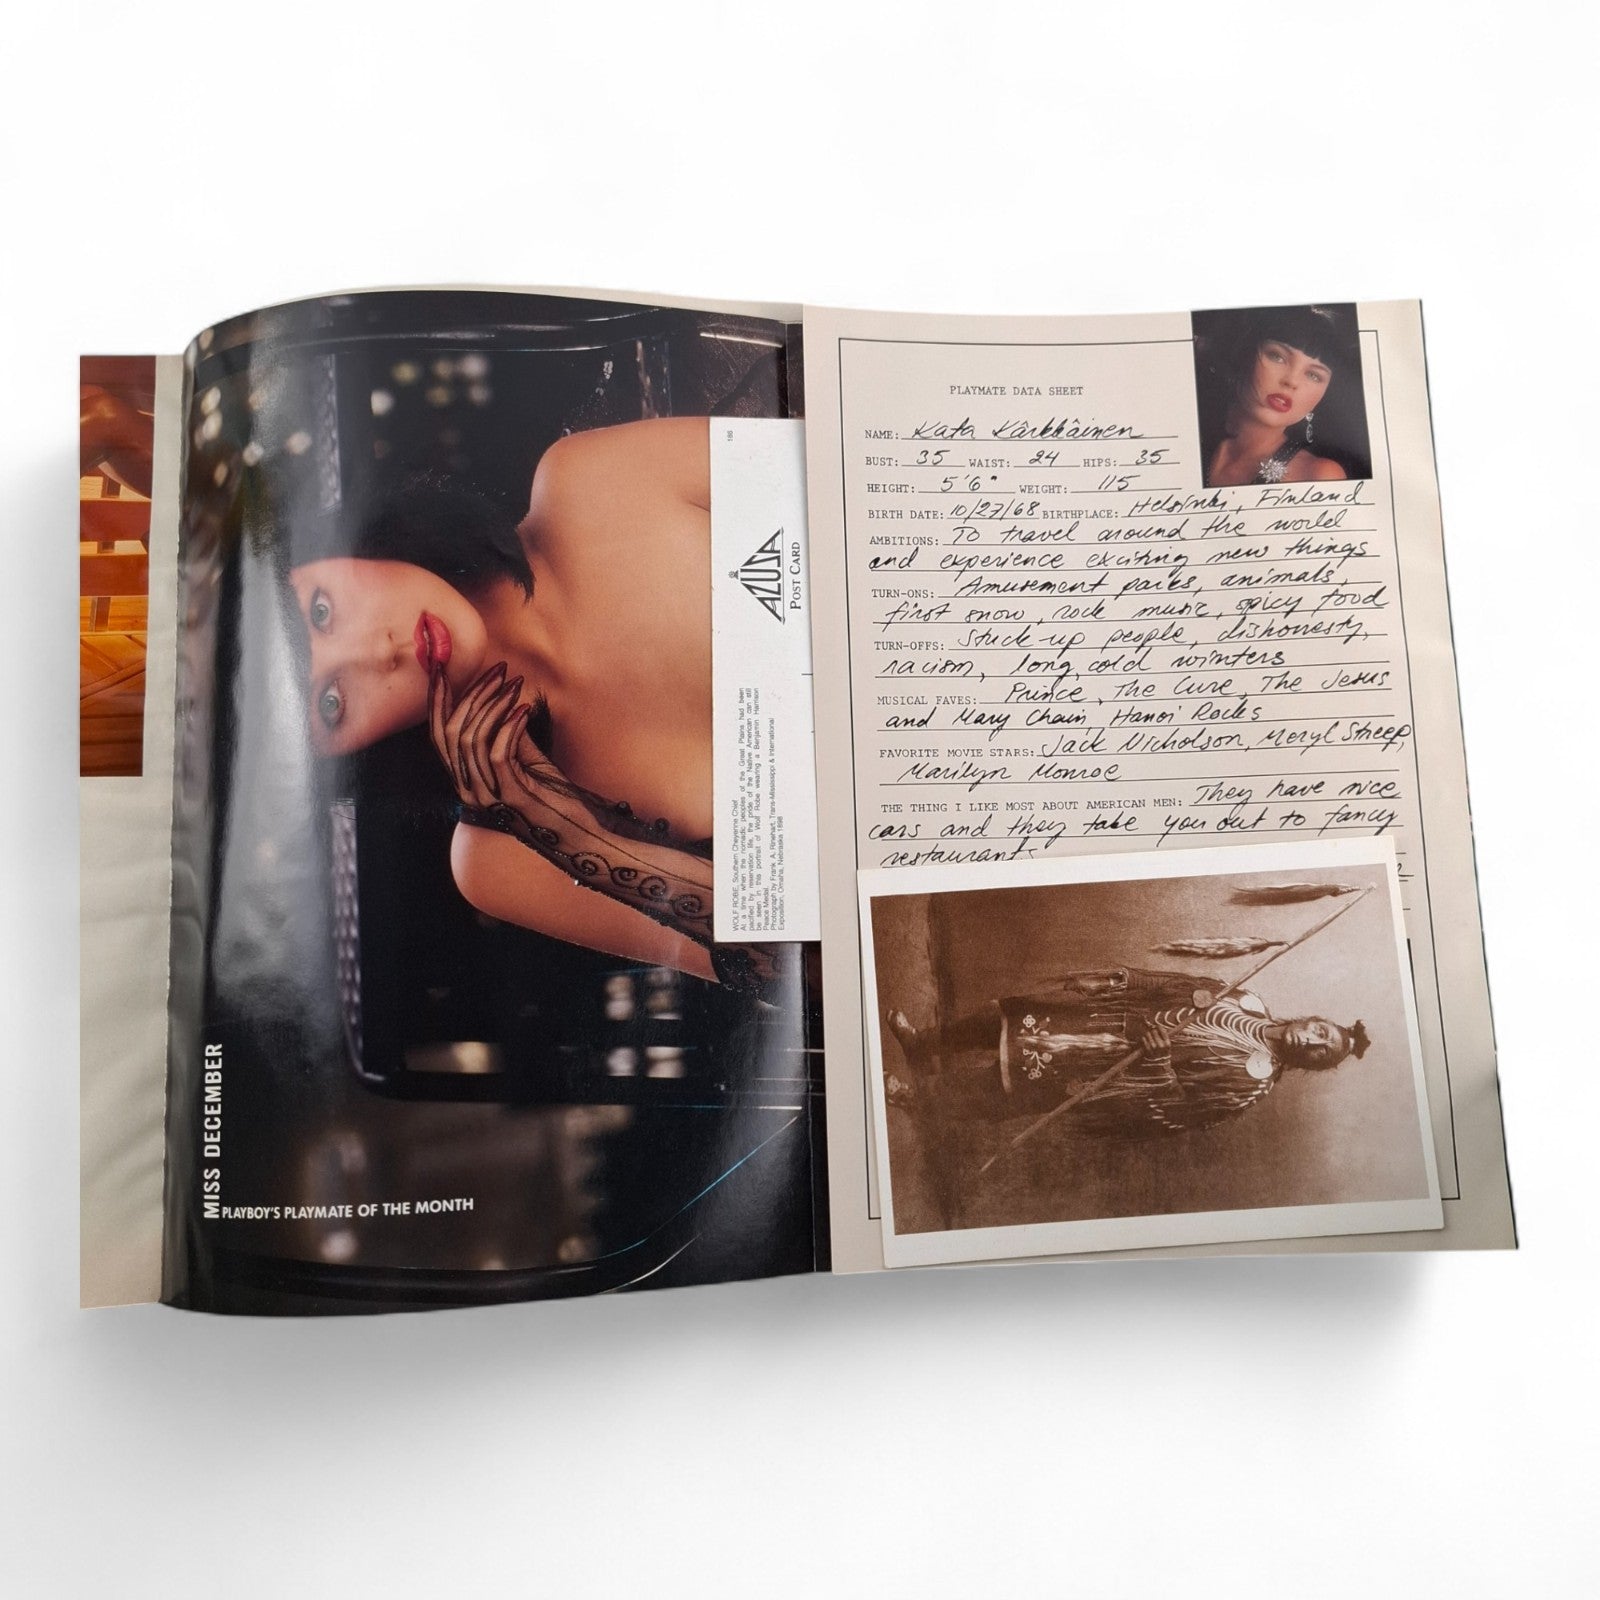 MISS DECEMBER
PLAYBOY'S PLAYMATE OF THE MONTH
186
AZUSA
POST CARD
WOLF ROBE, Southern Cheyenne Chief
At a time when the nomadic peoples of the Great Plains had been
pacified by reservation life, the pride of the Native American can still
be seen in this portrait of Wolf Robe wearing a Benjamin Harrison
Peace Medal.
Photograph by Frank A. Rinehart, Trans-Mississippi & International
Exposition, Omaha, Nebraska 1898
PLAYMATE DATA SHEET
NAME: Kata Kärkkäinen
BUST: 35 WAIST: 24 HIPS: 35
HEIGHT: 5'6" WEIGHT: 115
BIRTH DATE: 10/27/68 BIRTHPLACE: Helsinki, Finland
AMBITIONS: To travel around the world
and experience exciting new things
TURN-ONS: Amusement parks, animals,
first snow, rock music, spicy food
TURN-OFFS: Stuck-up people, dishonesty,
racism, long, cold winters
MUSICAL FAVES: Prince, The Cure, The Jesus
and Mary Chain, Hanoi Rocks
FAVORITE MOVIE STARS: Jack Nicholson, Meryl Streep,
Marilyn Monroe
THE THING I LIKE MOST ABOUT AMERICAN MEN: They have nice
cars and they take you out to fancy
restaurants